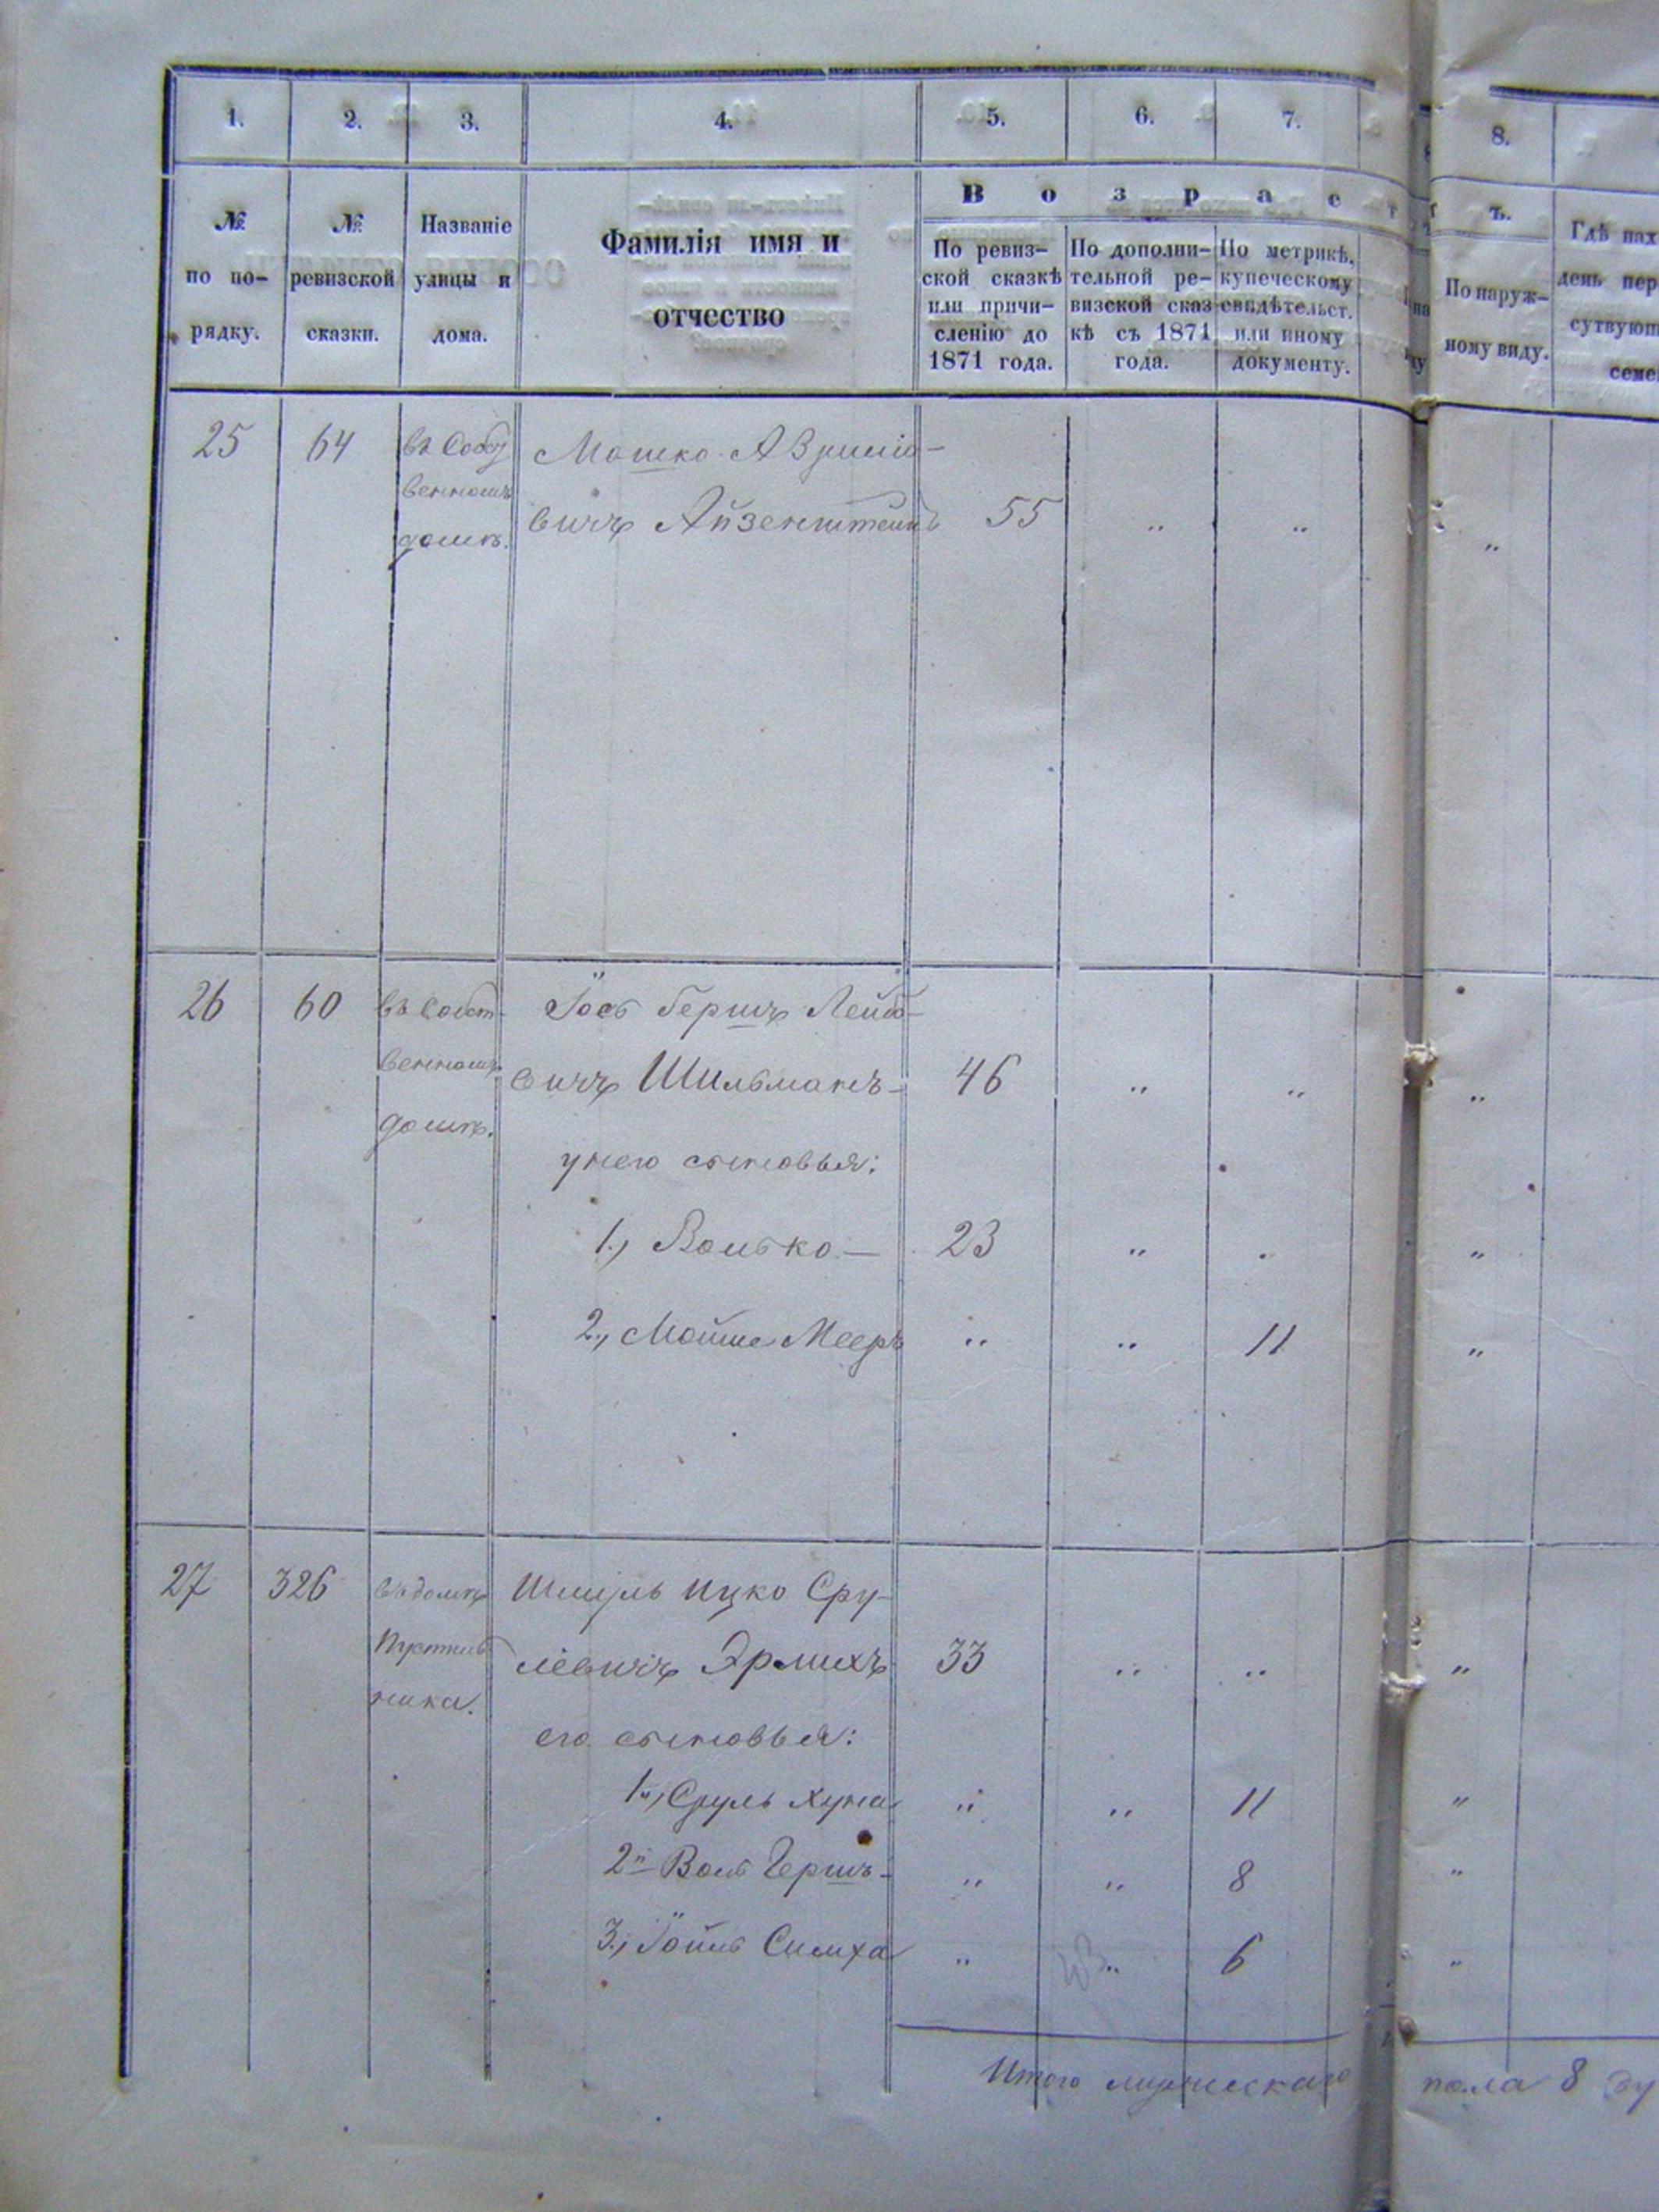 1. 2. 3. 4. 5. 6. 7. 8.
В о з р а с т ъ.
№ по по- рядку.
№ ревизской сказки.
Названіе улицы и дома.
Фамилія имя и
отчество
По ревиз- ской сказкѣ или причи- сленію до 1871 года.
По дополни- тельной ре- визской сказ кѣ съ 1871 года.
По метрикѣ, купеческому свидѣтельст. или иному документу.
По наруж- ному виду.
Гдѣ нах
день пер
сутвующ
семе
25 64 въ Собст
венномъ
домѣ.
Мошко
вичъ Айзенштейнъ 55 " " "
26 60 въ Собст-
венномъ
домѣ.
Іось Гершъ Лейбо-
вичъ Шильманъ- 46 " " "
у него сыновья:
1., Волько- 23 " " "
2., Мойше Мееръ " " 11 "
27 326 въ домѣ
ника.
Шмуль Ицко Сру-
левичъ Эрлихъ 33 " " "
его сыновья:
1й, Сруль Хуна " " 11 "
2й Воль Гершъ- " " 8 "
3., Симха " " 6 "
Итого мужескаго пола 8 ду